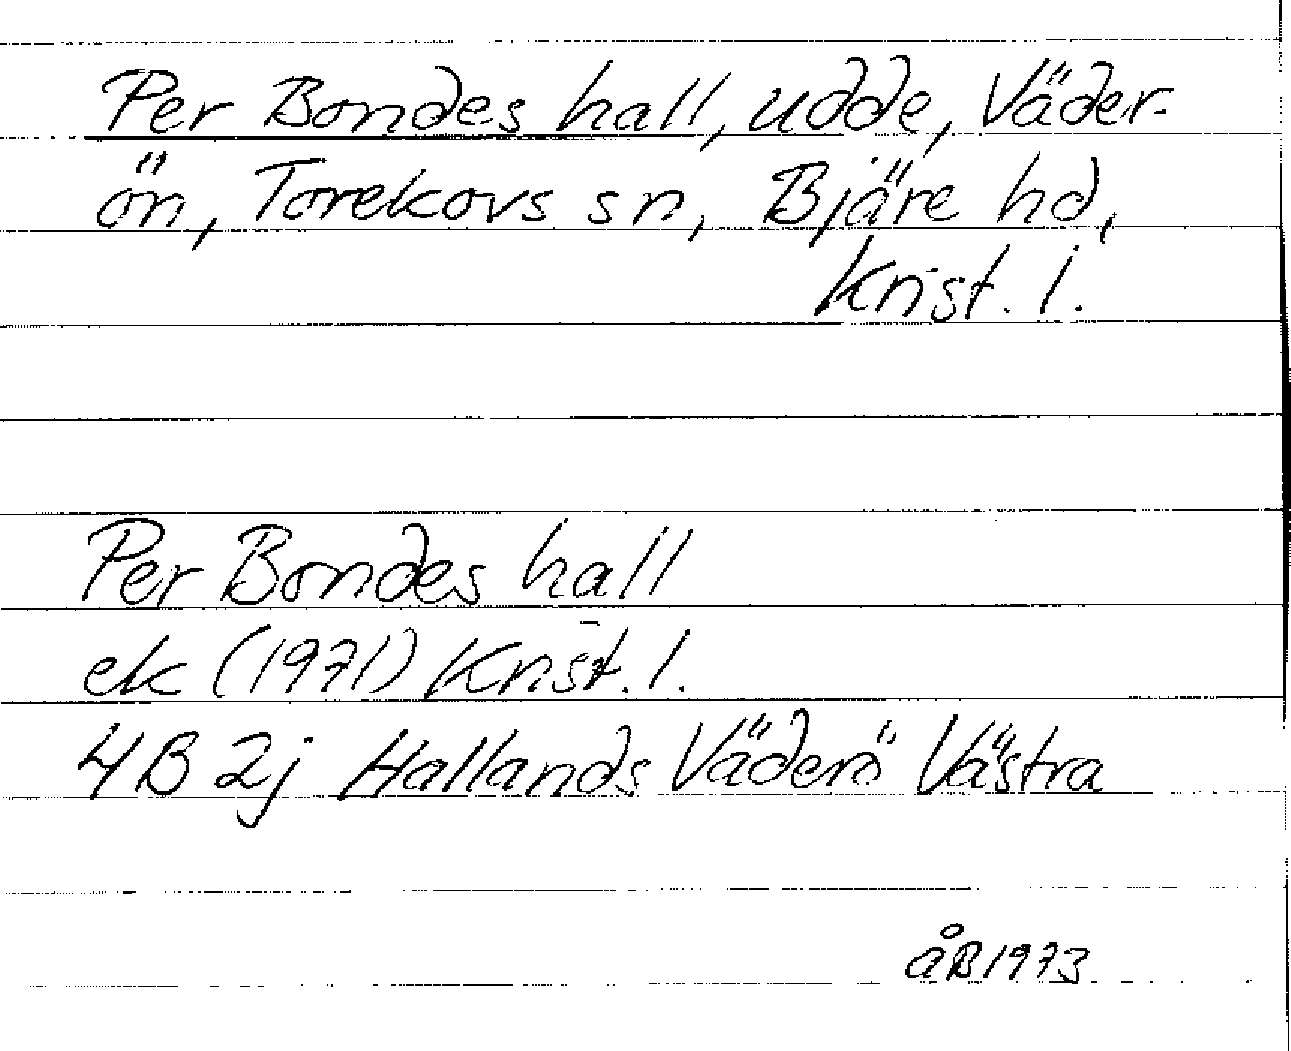 Per Bondes hall, udde, Väder-
ön, Torekovs sn, Bjäre hd,
Krist. l.
Per Bondes hall
ek (1971) Krist. l.
4B 2j Hallands Väderö Västra
åB 1973